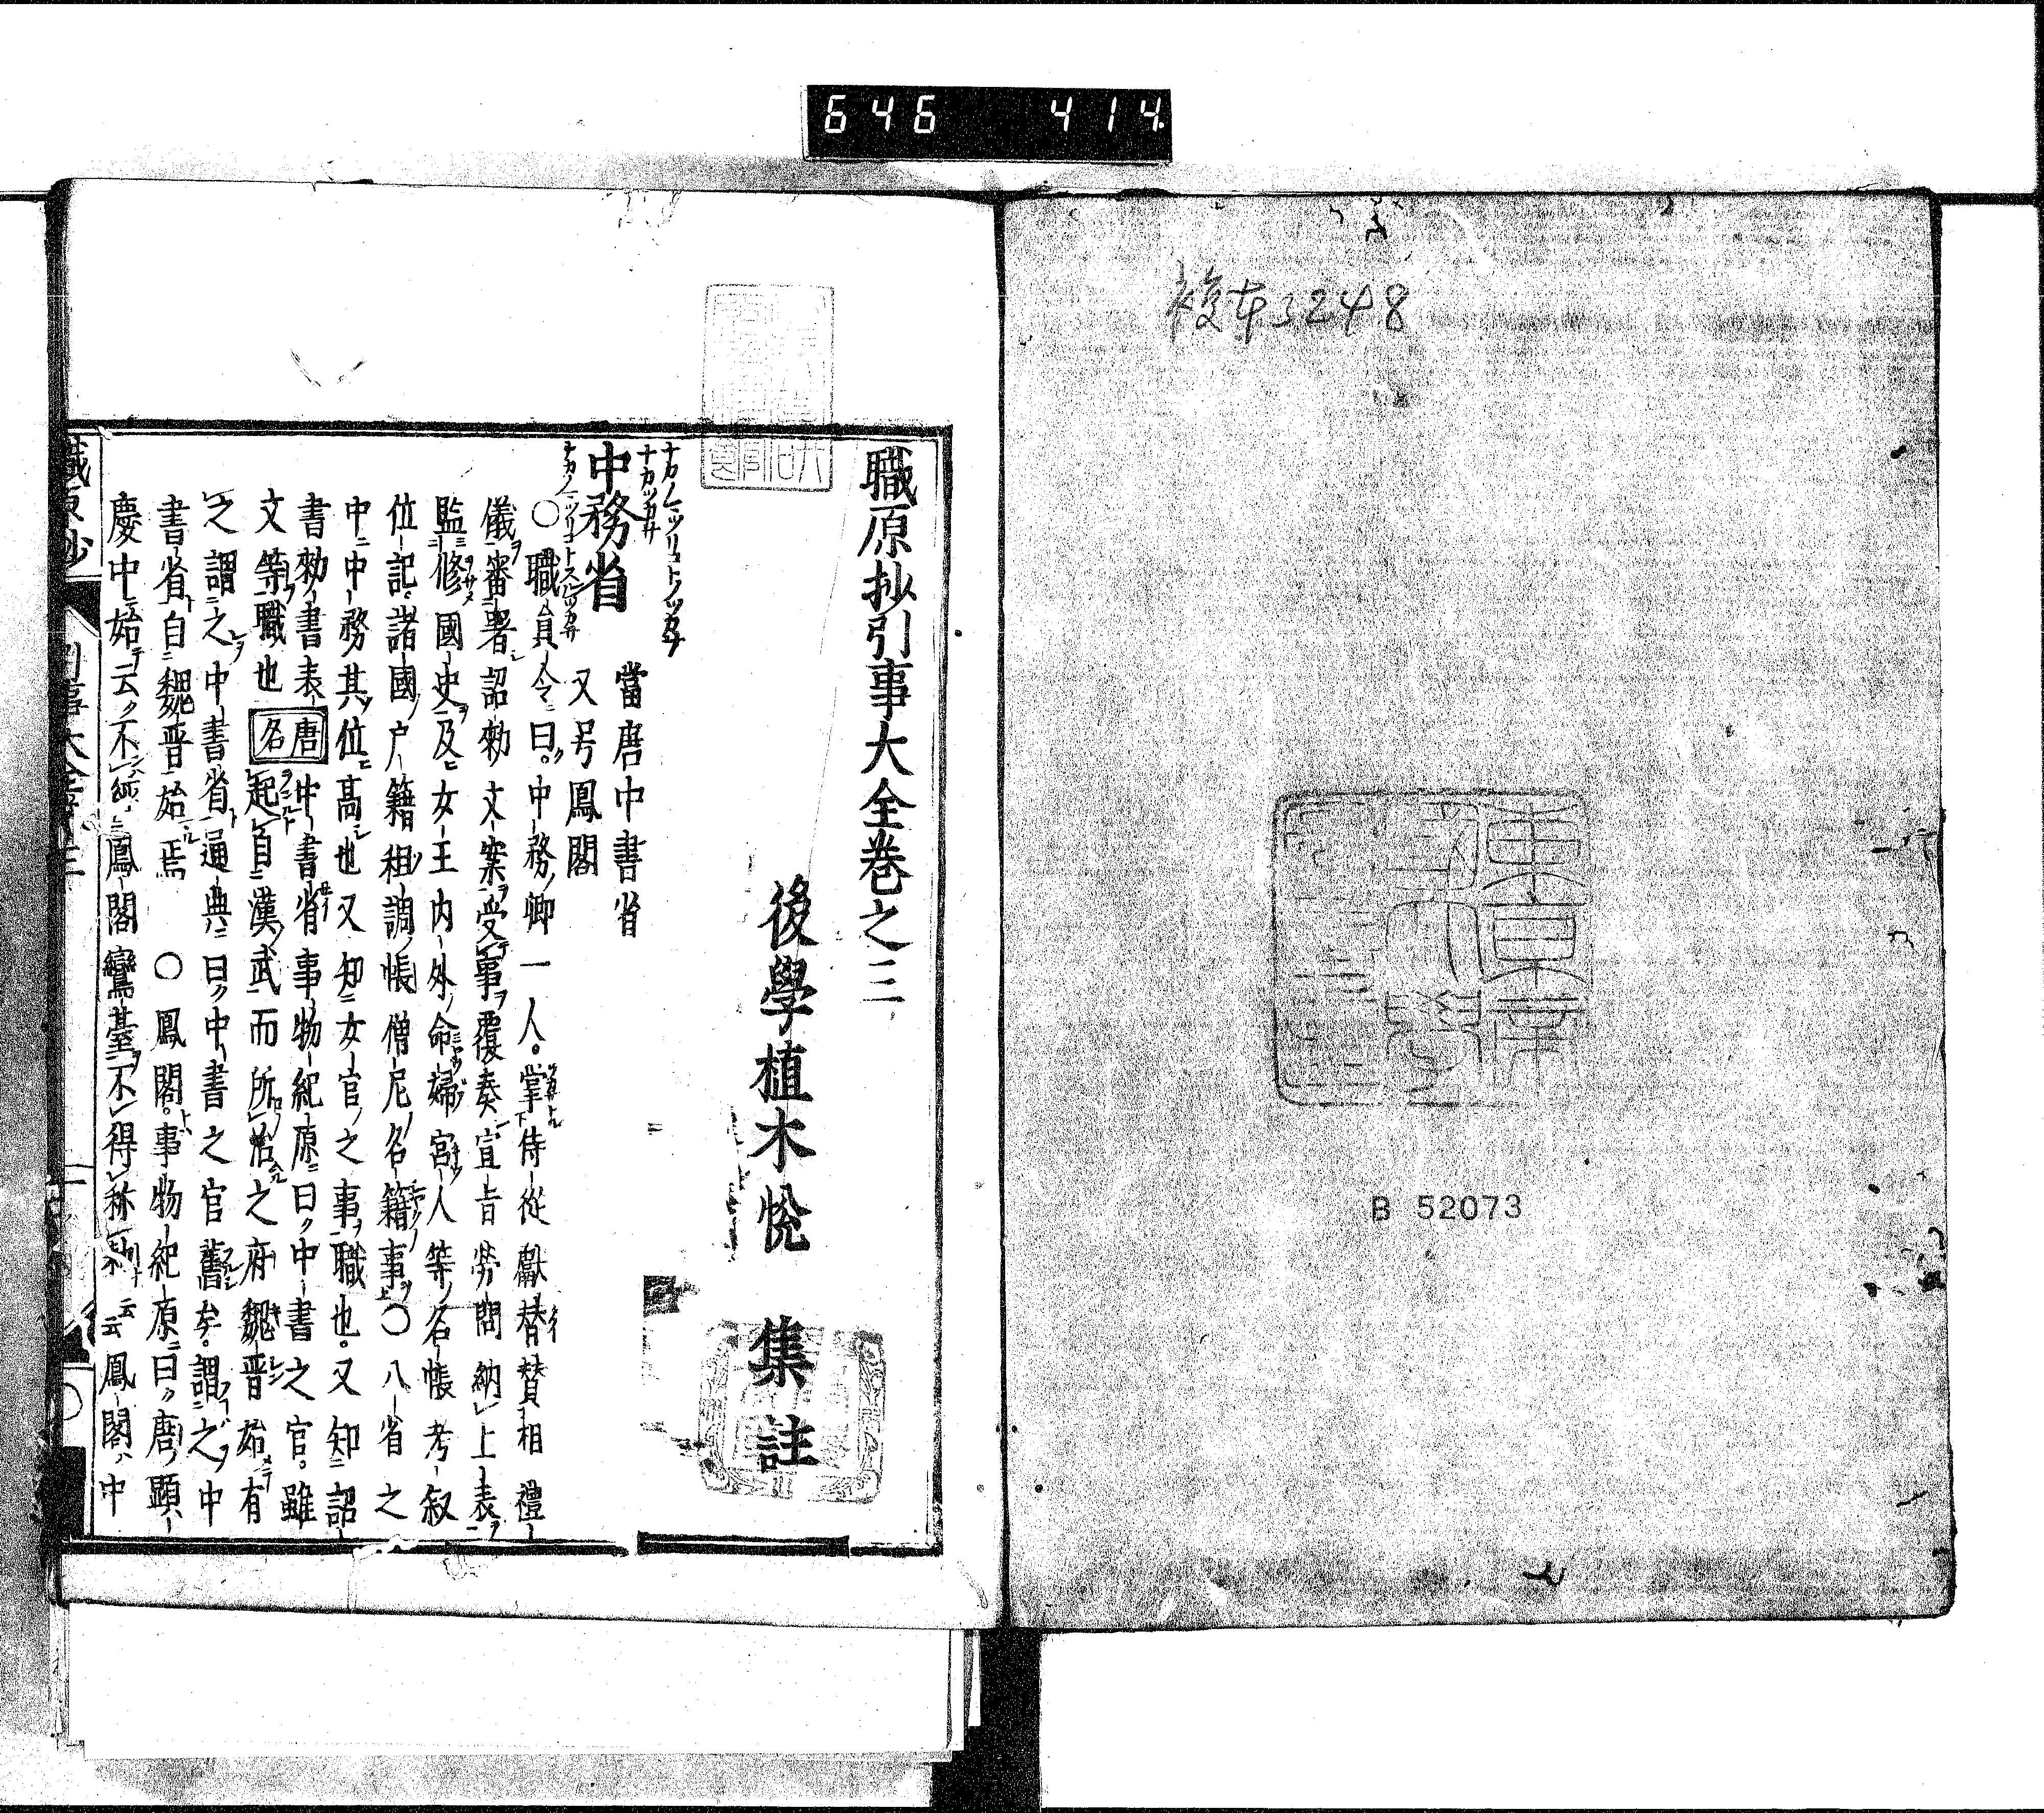 646 414
複本3248
東京
B 52073
職原抄引事大全巻之三
後學植木悦 集註
中務省
當唐中書省
又号鳳閣
〇職員令曰中務卿一人掌侍從獻替賛相禮
儀審署詔勅文案受事覆奏宣旨勞問納上表
監修國史及女王内外命婦宮人等名帳考叙
位記諸國戸籍租調帳僧尼名籍事〇八省之
中中務其位高也又知女官之事職也又知詔
書勅書表唐中書省事物紀原曰中書之官雖
文等職也名起自漢武而所治之府魏晋始有
之謂之中書省通典曰中書之官舊矣謂之中
書省自魏晋始焉 〇鳳閣事物紀原曰唐顯
慶中始云不經鳳閣鸞臺不得称云云鳳閣中